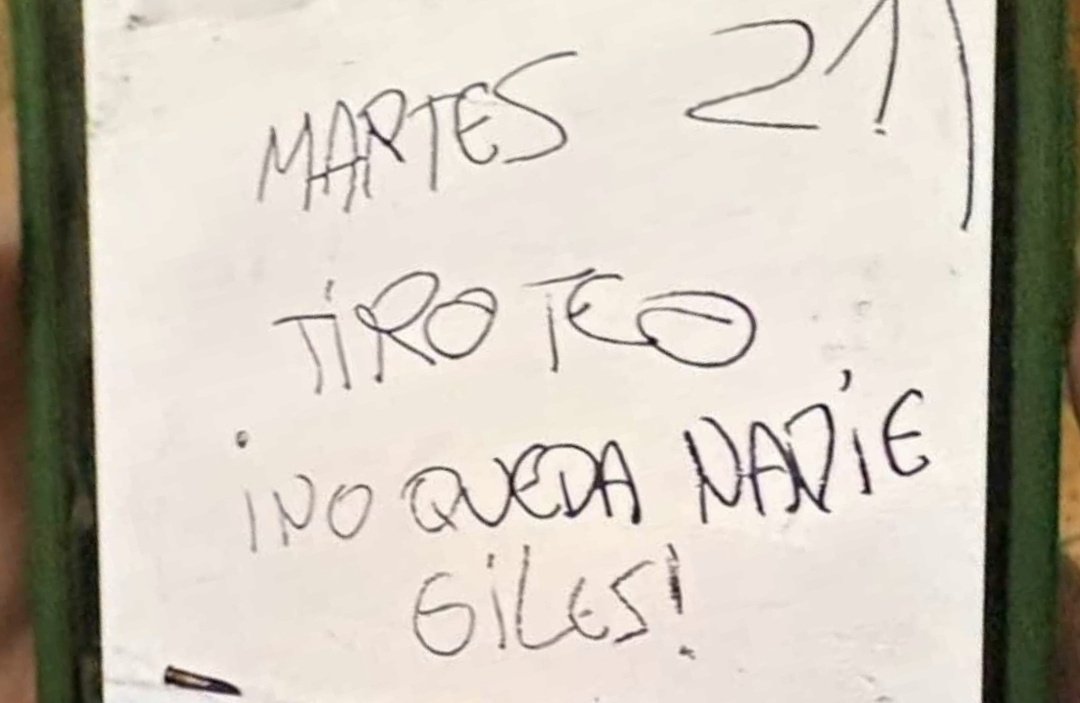 MARTES 21
TIROTEO
¡NO QUEDA NADIE
GILES!